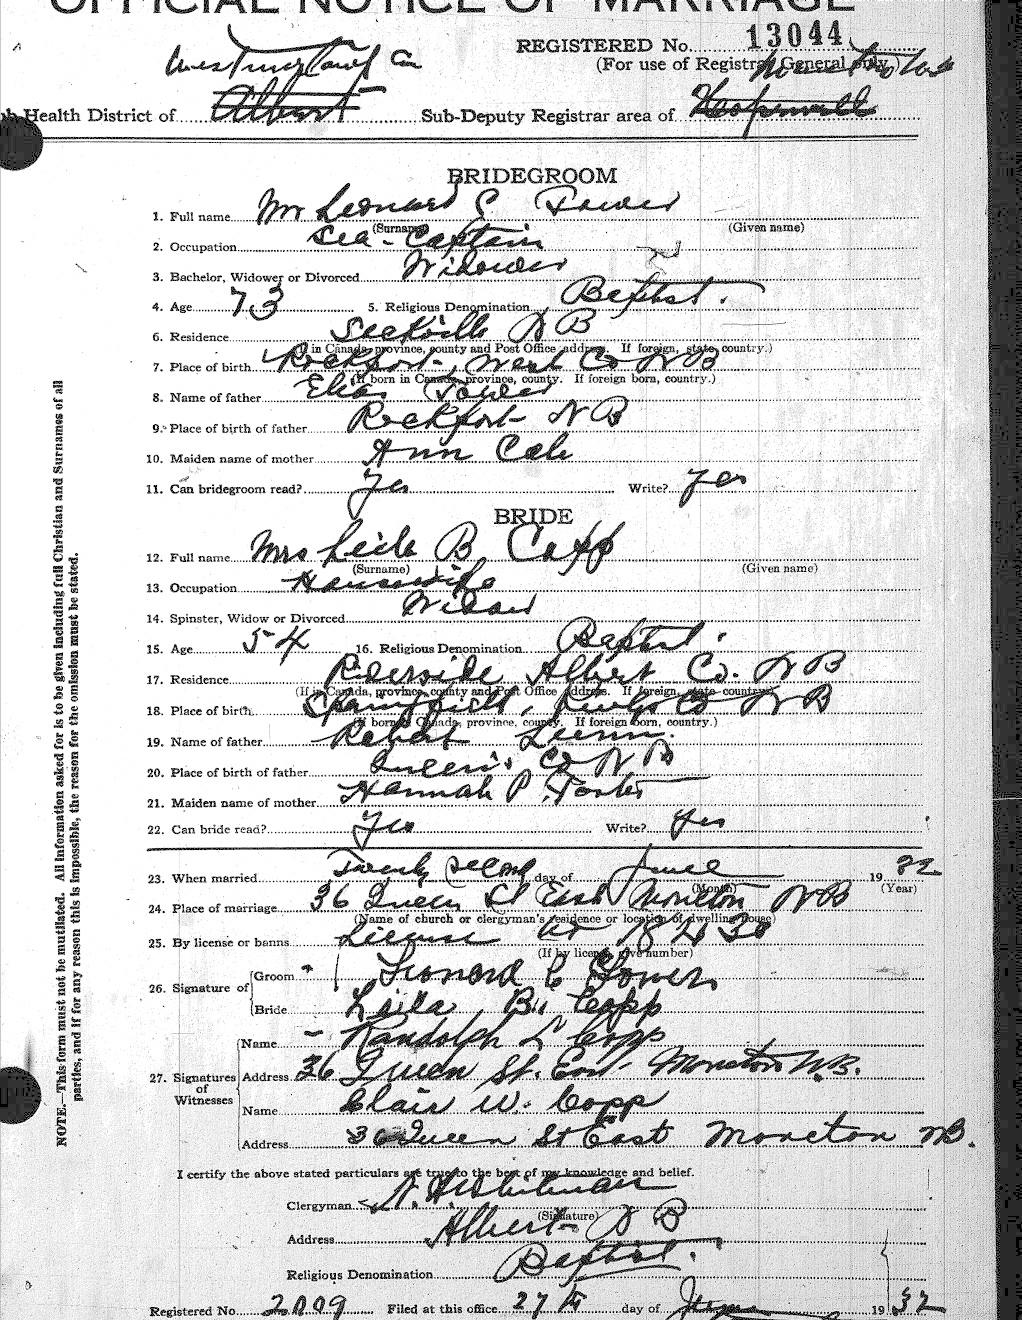 OFFICIAL NOTICE OF MARRIAGE
REGISTERED No. 13044
(For use of Registrar General only.)
Westmorland Co
Moncton
Health District of Albert Sub-Deputy Registrar area of Hopewell
BRIDEGROOM
1. Full name Mr Leonard C Tower
(Surname) (Given name)
2. Occupation Sea-Captain
3. Bachelor, Widower or Divorced Widower
4. Age 73 5. Religious Denomination Baptist.
6. Residence Sackville N B
(If in Canada, province, county and Post Office address. If foreign, state country.)
7. Place of birth Rockport, West Co N B
(If born in Canada, province, county. If foreign born, country.)
8. Name of father Elias Tower
9. Place of birth of father Rockport N B
10. Maiden name of mother Ann Cole
11. Can bridegroom read? Yes Write? Yes
BRIDE
12. Full name Mrs Leila B Copp
(Surname) (Given name)
13. Occupation Housewife
14. Spinster, Widow or Divorced Widow
15. Age 54 16. Religious Denomination Baptist.
17. Residence Riverside Albert Co. N B
(If in Canada, province, county and Post Office address. If foreign, state country)
18. Place of birth Springfield, Kings Co N B
(If born in Canada, province, county. If foreign born, country.)
19. Name of father Robert
20. Place of birth of father Queen's Co N B
21. Maiden name of mother Hannah P. Foster
22. Can bride read? Yes Write? Yes
23. When married Twenty second day of June 19 32
(Month) (Year)
24. Place of marriage 36 Queen St East Moncton N B
(Name of church or clergyman's residence or location of dwelling house)
25. By license or banns License
(If by license, give number)
26. Signature of Groom Leonard C Tower
Bride Leila B. Copp
27. Signatures of Witnesses Name Randolph L Copp
Address 36 Queen St. East Moncton N.B.
Name Clair W. Copp
Address 36 Queen St East Moncton NB.
I certify the above stated particulars are true to the best of my knowledge and belief.
Clergyman Whitman
(Signature)
Address Albert N B
Religious Denomination Baptist.
Registered No. 2009 Filed at this office 27 day of June 19 32
NOTE.—This form must not be mutilated. All information asked for is to be given including full Christian and Surnames of all
parties, and if for any reason this is impossible, the reason for the omission must be stated.